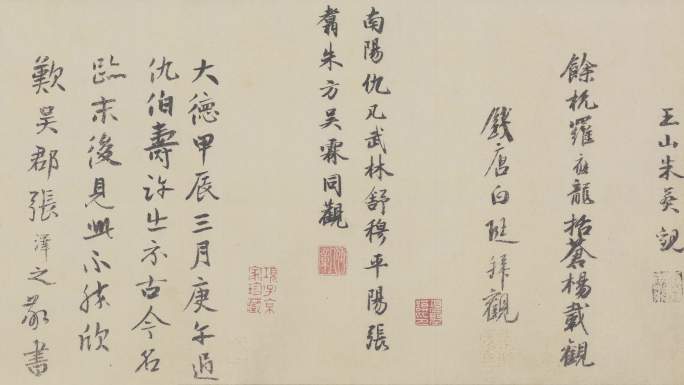 王山朱英觀
餘杭羅志龍括蒼楊載觀
錢唐白珽拜觀
南陽仇几武林舒穆平陽張
翥朱方吴霖同觀
大德甲辰三月庚午過
仇伯壽許出示古今名
蹟末後見此不勝欣
歎吴郡張澤之敬書
項子京
家珍藏